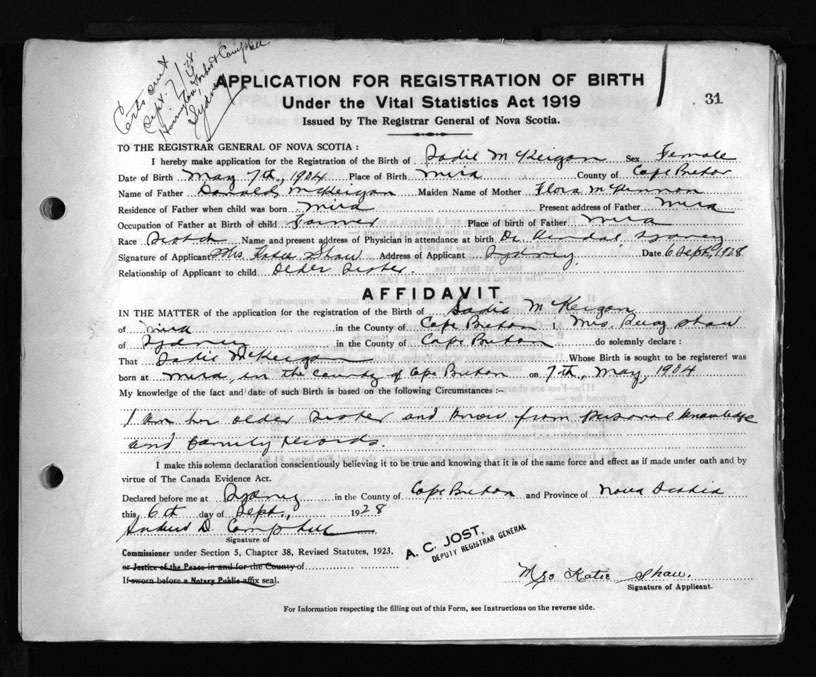 Certs out
Sept. 7/28
Campbell
Sydney
APPLICATION FOR REGISTRATION OF BIRTH
Under the Vital Statistics Act 1919
31
Issued by The Registrar General of Nova Scotia.
TO THE REGISTRAR GENERAL OF NOVA SCOTIA :
I hereby make application for the Registration of the Birth of Sadie McKeigan Sex Female
Date of Birth May 7th, 1904 Place of Birth Mira County of Cape Breton
Name of Father Donald McKeigan Maiden Name of Mother Flora McKinnon
Residence of Father when child was born Mira Present address of Father Mira
Occupation of Father at Birth of child Farmer Place of birth of Father Mira
Race Scotch Name and present address of Physician in attendance at birth Dr. Kendal, Sydney
Signature of Applicant Mrs. Katie Shaw Address of Applicant Sydney Date 6 Sept, 1928
Relationship of Applicant to child Older Sister.
AFFIDAVIT
IN THE MATTER of the application for the registration of the Birth of Sadie McKeigan
of Mira in the County of Cape Breton I, Mrs. Shaw
of Sydney in the County of Cape Breton do solemnly declare :
That Sadie McKeigan Whose Birth is sought to be registered was
born at Mira, in the County of Cape Breton on 7th, May, 1904
My knowledge of the fact and date of such Birth is based on the following Circumstances :-
I am her older sister and know from personal knowledge
and family records.
I make this solemn declaration conscientiously believing it to be true and knowing that it is of the same force and effect as if made under oath and by
virtue of The Canada Evidence Act.
Declared before me at Sydney in the County of Cape Breton and Province of Nova Scotia
this 6th day of Sept., 1928
D. Campbell
Signature of
Commissioner under Section 5, Chapter 38, Revised Statutes, 1923,
or Justice of the Peace in and for the County of
If sworn before a Notary Public affix seal.
A. C. JOST,
DEPUTY REGISTRAR GENERAL
Mrs Katie Shaw.
Signature of Applicant.
For Information respecting the filling out of this Form, see Instructions on the reverse side.